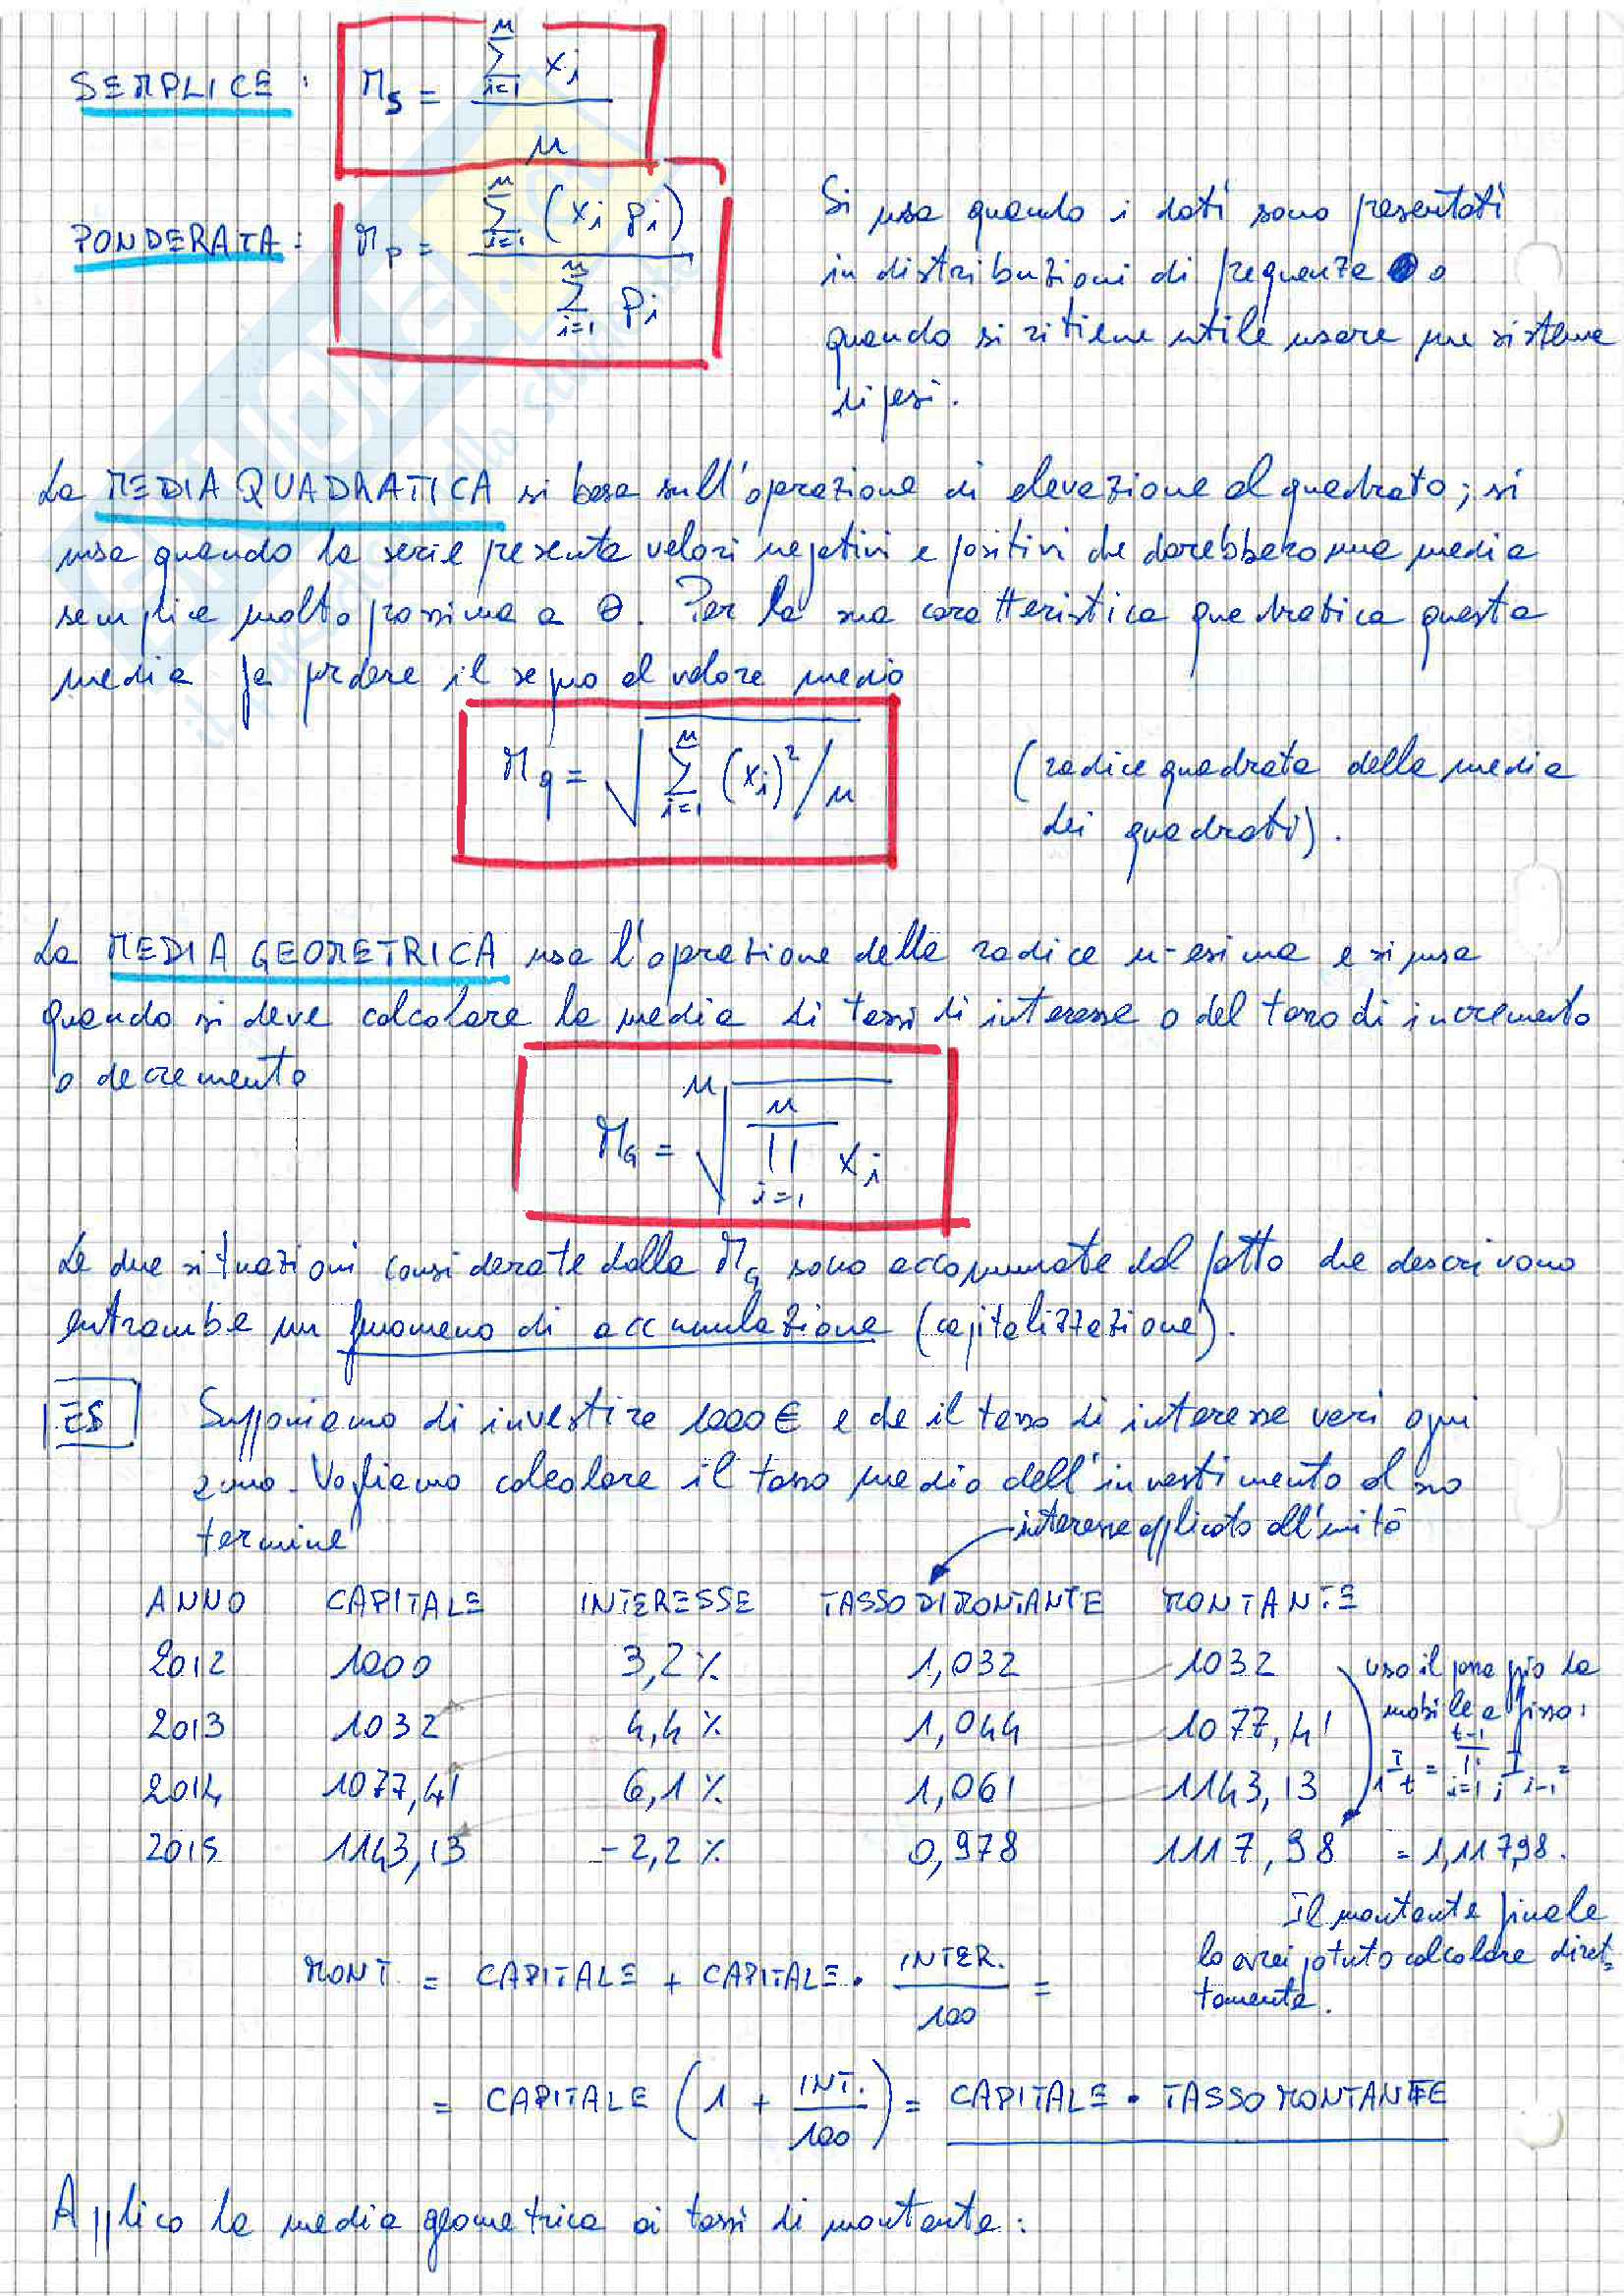 SEMPLICE : Ms = Σ(i=1..n) xi / n
PONDERATA : Mp = Σ(i=1..n) (xi pi) / Σ(i=1..n) pi
Si usa quando i dati sono presentati
in distribuzioni di frequenze o
quando si ritiene utile usare un sistema
di pesi.
La MEDIA QUADRATICA si basa sull'operazione di elevazione al quadrato; si
usa quando la serie presenta valori negativi e positivi che darebbero una media
semplice molto prossima a 0. Per la sua caratteristica quadratica questa
media fa prdere il segno al valore medio
Mq = √( Σ(i=1..n) (xi)² / n )
(radice quadrata della media
dei quadrati).
La MEDIA GEOMETRICA usa l'oprazione della radice n-esima e si usa
quando si deve calcolare la media di tassi di interesse o del tasso di incremento
o decremento
MG = n√( Π(i=1..n) xi )
Le due situazioni considerate dalla MG sono accomunate dal fatto che descrivono
entrambe un fenomeno di accumulazione (capitalizzazione).
ES Supponiamo di investire 1000 € e che il tasso di interesse vari ogni
anno. Vogliamo calcolare il tasso medio dell'investimento al suo
termine
interesse applicato all'unità
ANNO CAPITALE INTERESSE TASSO DI MONTANTE MONTANTE
2012 1000 3,2 % 1,032 1032
2013 1032 4,4 % 1,044 1077,41
2014 1077,41 6,1 % 1,061 1143,13
2015 1143,13 -2,2 % 0,978 1117,98
uso il passaggio da
mobile a fisso:
1It = Π(i=1..t-1) iIi-1 =
= 1,11798.
Il montante finale
lo avrei potuto calcolare diret-
tamente.
MONT. = CAPITALE + CAPITALE · INTER. / 100 =
= CAPITALE (1 + INT. / 100) = CAPITALE · TASSO MONTANTE
Applico la media geometrica ai tassi di montante :